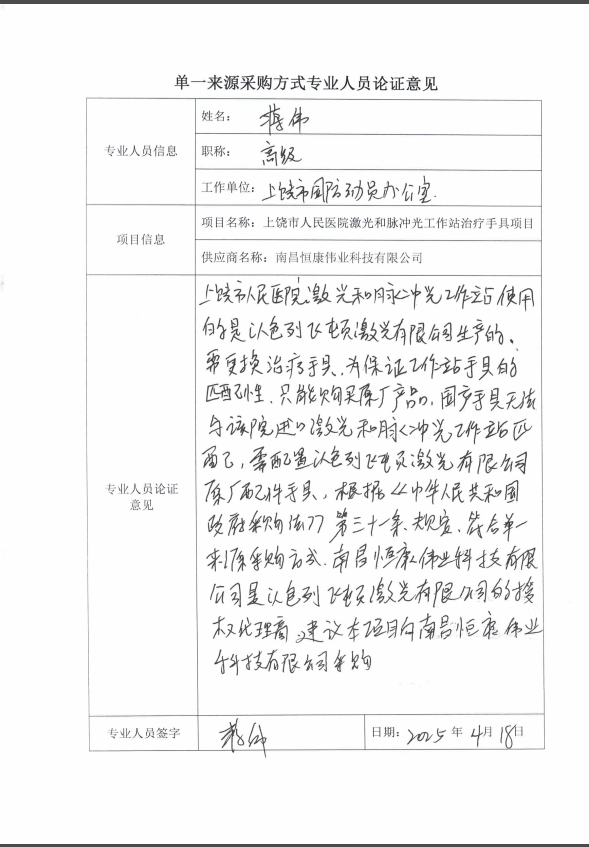 单一来源采购方式专业人员论证意见
专业人员信息
姓名：蒋伟
职称：高级
工作单位：上饶市国防动员办公室
项目信息
项目名称：上饶市人民医院激光和脉冲光工作站治疗手具项目
供应商名称：南昌恒康伟业科技有限公司
专业人员论证
意见
上饶市人民医院激光和脉冲光工作站使用
的是以色列飞顿激光有限公司生产的。
需更换治疗手具、为保证工作站手具的
匹配性，只能购买原厂产品，国产手具无法
与该院进口激光和脉冲光工作站匹
配，需配置以色列飞顿激光有限公司
原厂配件手具，根据《中华人民共和国
政府采购法》第三十一条规定、符合单一
来源采购方式．南昌恒康伟业科技有限
公司是以色列飞顿激光有限公司的授
权代理商，建议本项目向南昌恒康伟业
科技有限公司采购
专业人员签字 蒋伟 日期：2025年4月18日